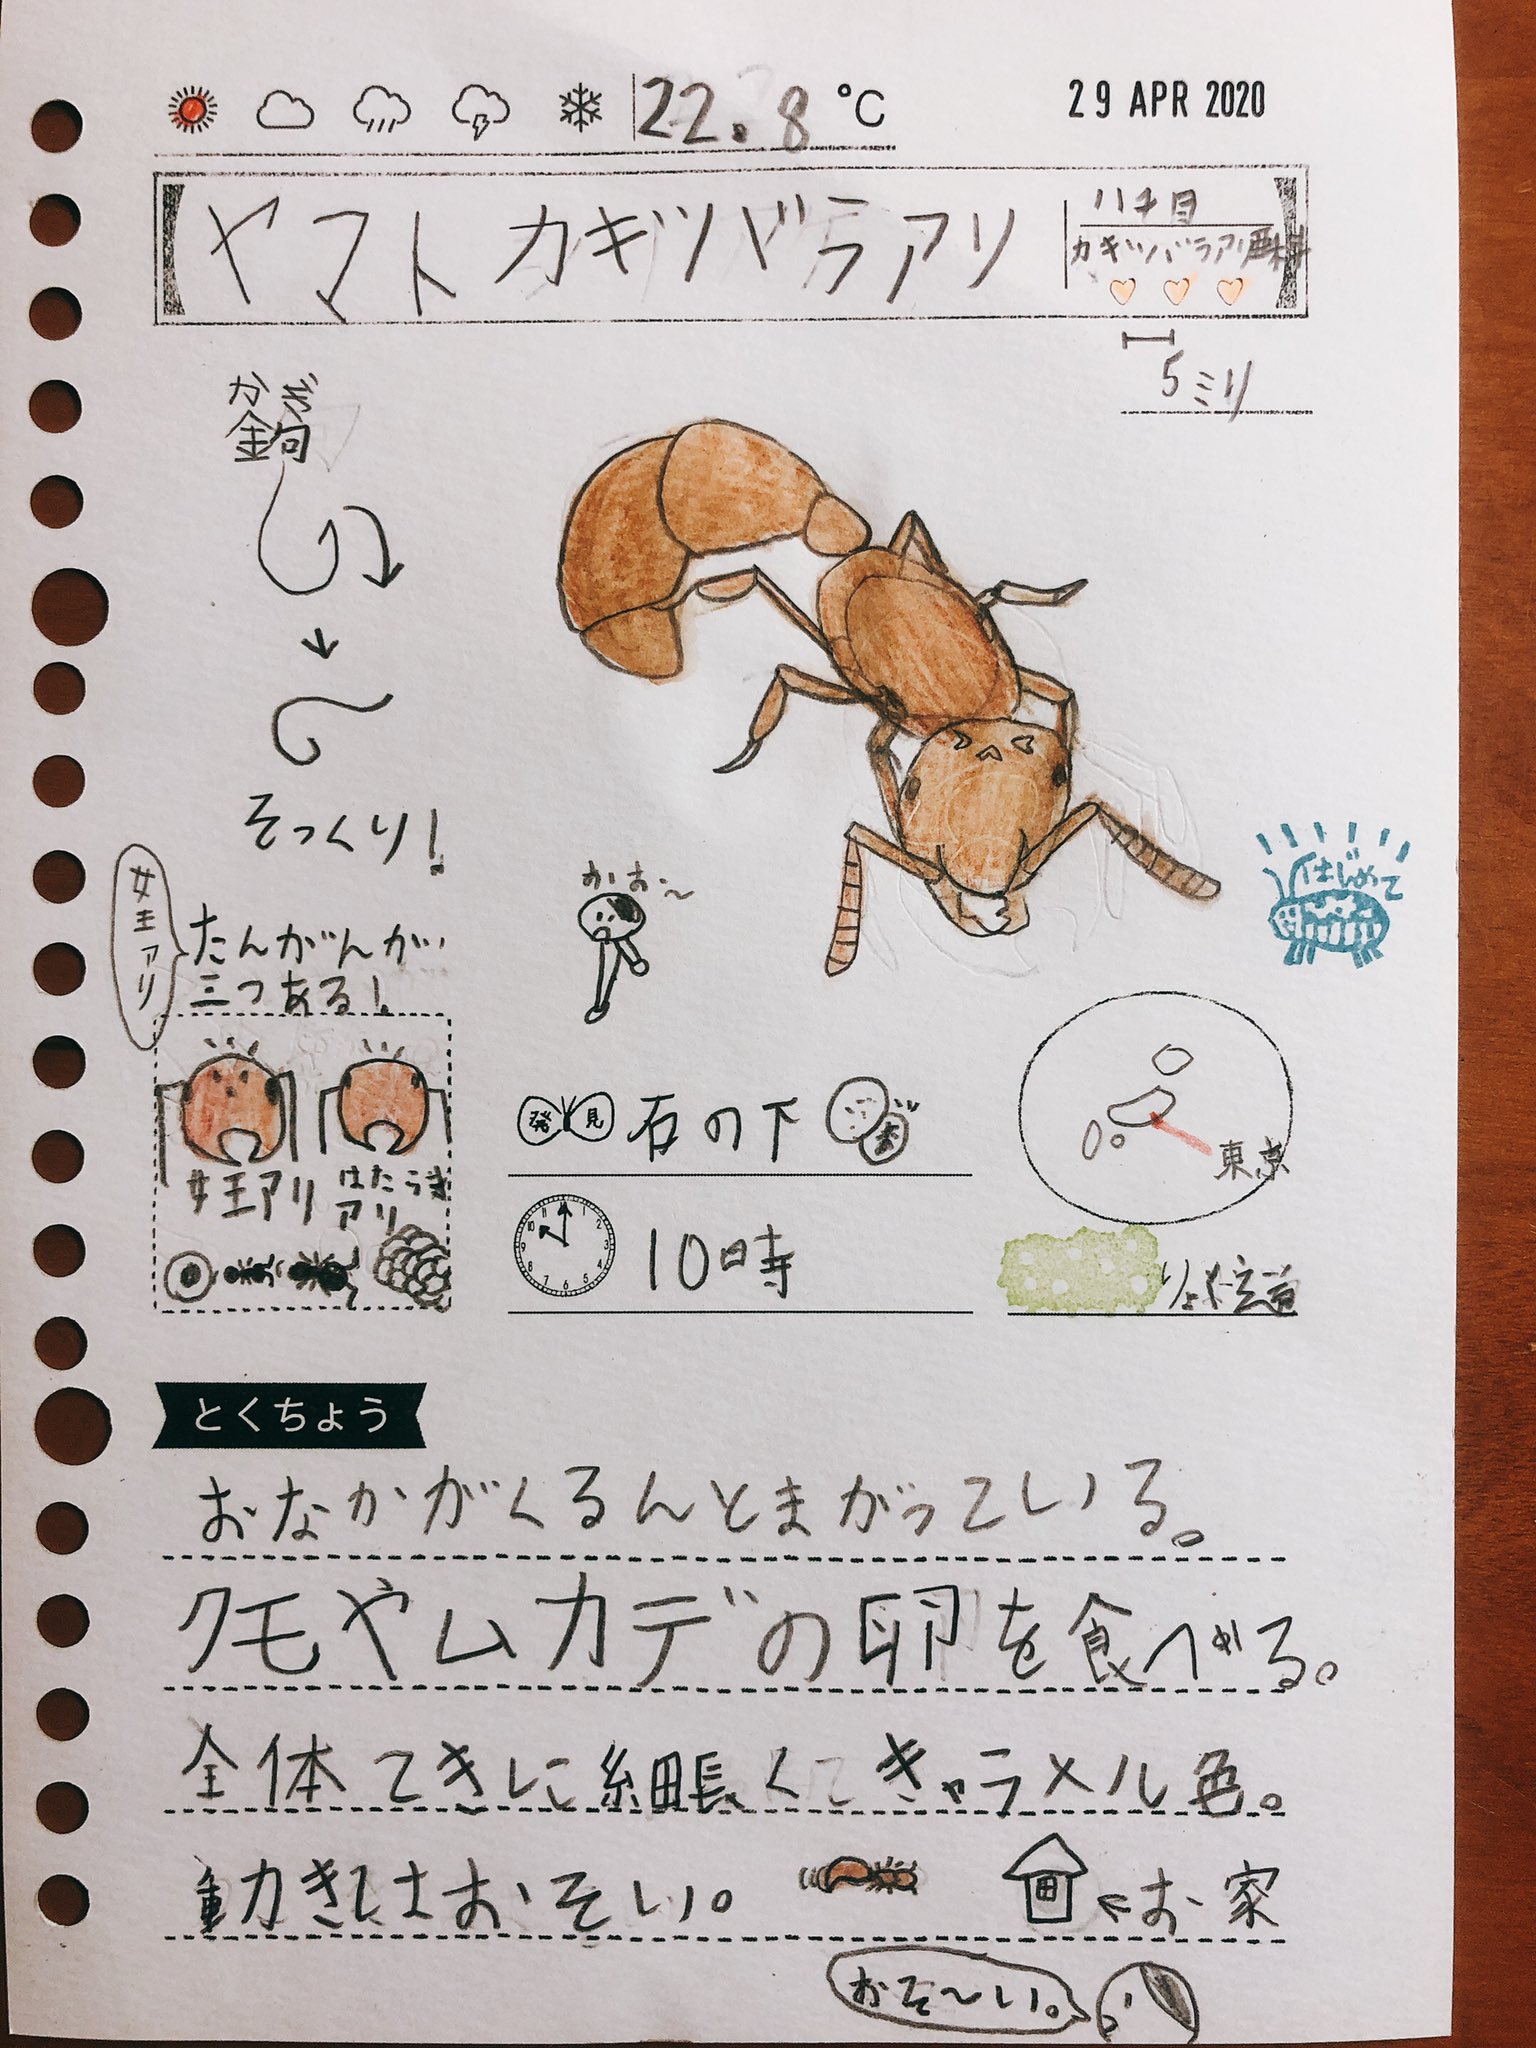 22.8 ℃
29 APR 2020
ヤマトカギツバラアリ
ハチ目
カギツバラアリ亜科
5ミリ
かぎ
鉤
そっくり!
女王アリ
たんがんが
三つある!
女王アリ
はたらき
アリ
かお~
はじめて
発見 石の下
10時
東京
道
とくちょう
おなかがくるんとまがっている。
クモやムカデの卵を食べる。
全体てきに細長くてきゃラメル色。
動きはおそい。
お家
おそ~い。